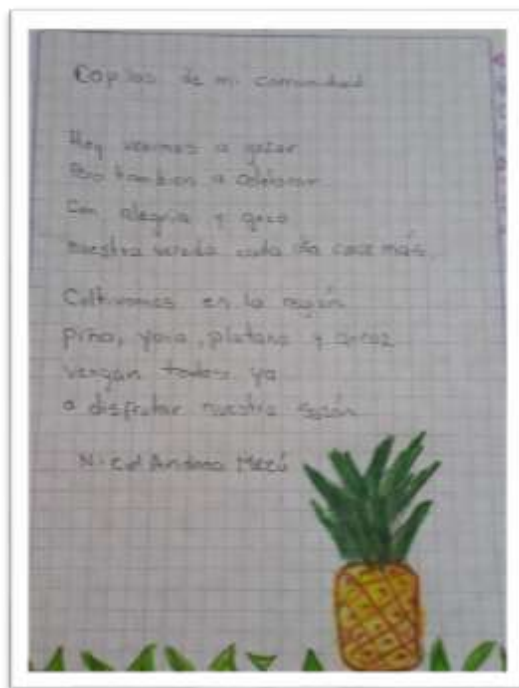 Coplas de mi comunidad
Hoy venimos a gozar
Pero tambien a celebrar
Con alegria y gozo
nuestra vereda cada dia crece más.
Cultivamos en la región
piña, yuca, platano y arroz
vengan todos ya
a disfrutar nuestra sazón
Andrea